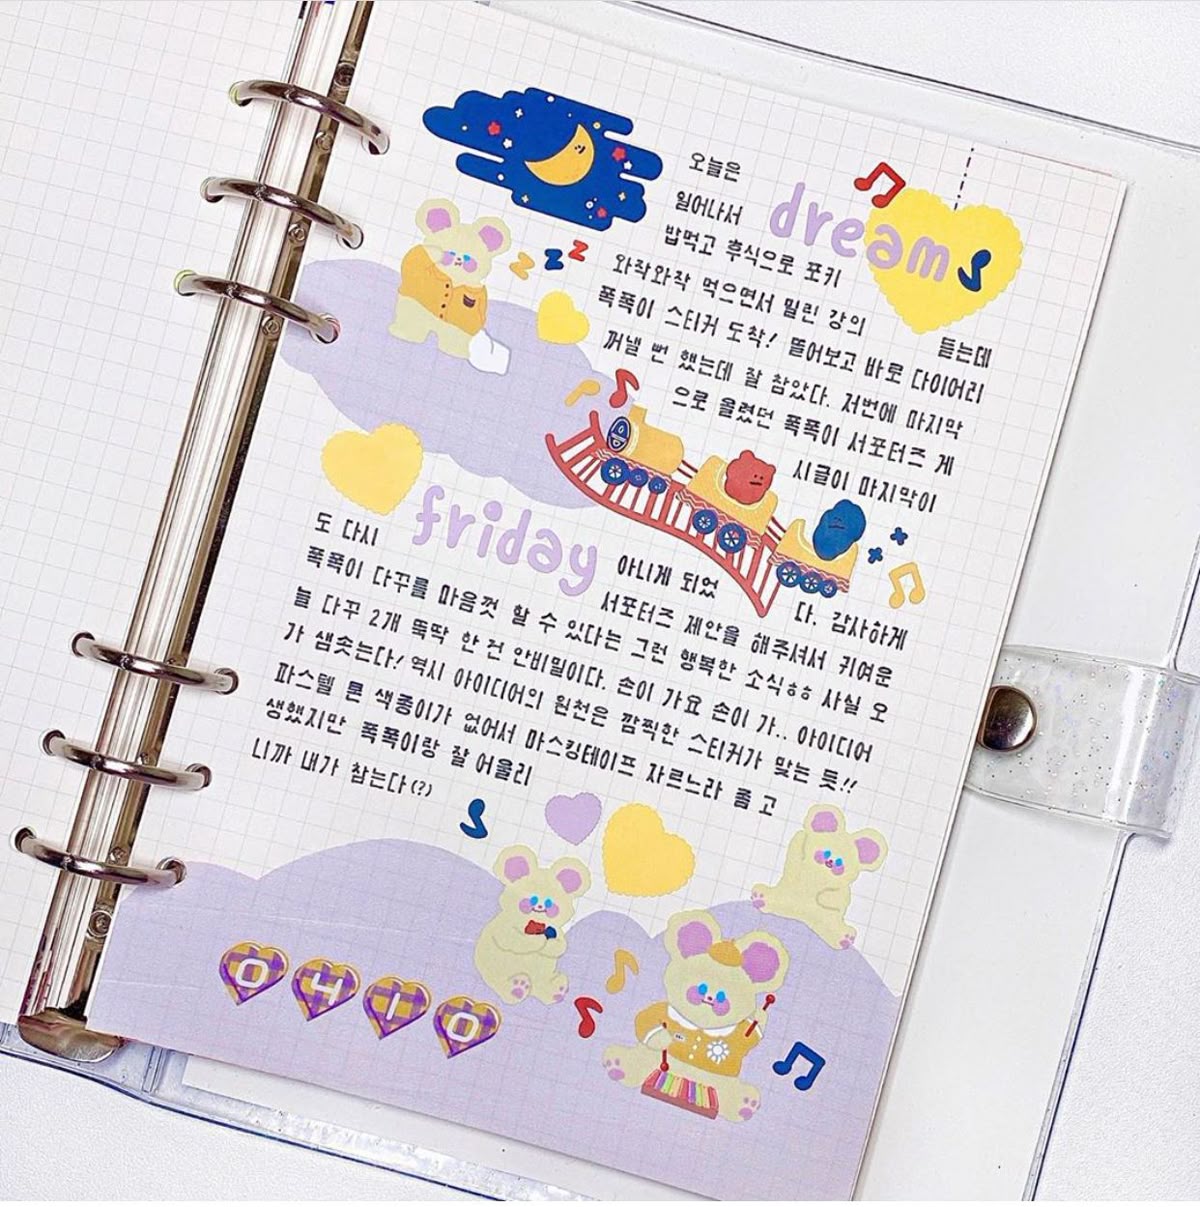 오늘은
일어나서
dream
밥먹고 후식으로 포키
와작와작 먹으면서 밀린 강의 듣는데
폭폭이 스티커 도착! 뜯어보고 바로 다이어리
꺼낼 뻔 했는데 잘 참았다. 저번에 마지막
으로 올렸던 폭폭이 서포터즈 게
시글이 마지막이
friday
도 다시 아니게 되었 다. 감사하게
폭폭이 다꾸를 마음껏 할 수 있다는 그런 행복한 소식ㅎㅎ 사실 오
서포터즈 제안을 해주셔서 귀여운
늘 다꾸 2개 뚝딱 한 건 안비밀이다. 손이 가요 손이 가.. 아이디어
가 샘솟는다! 역시 아이디어의 원천은 깜찍한 스티커가 맞는 듯!!
파스텔 톤 색종이가 없어서 마스킹테이프 자르느라 좀 고
생했지만 폭폭이랑 잘 어울리
니까 내가 참는다(?)
z z z
0410